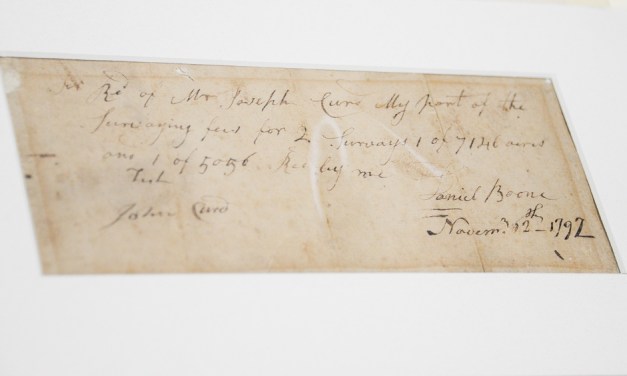 Rd of Mr Joseph Curd My part of the
Survaying fees for 2 Survays 1 of 7146 acres
and 1 of 5056 Rec by me
Test
Daniel Boone
John Curd
Novem 12th 1797